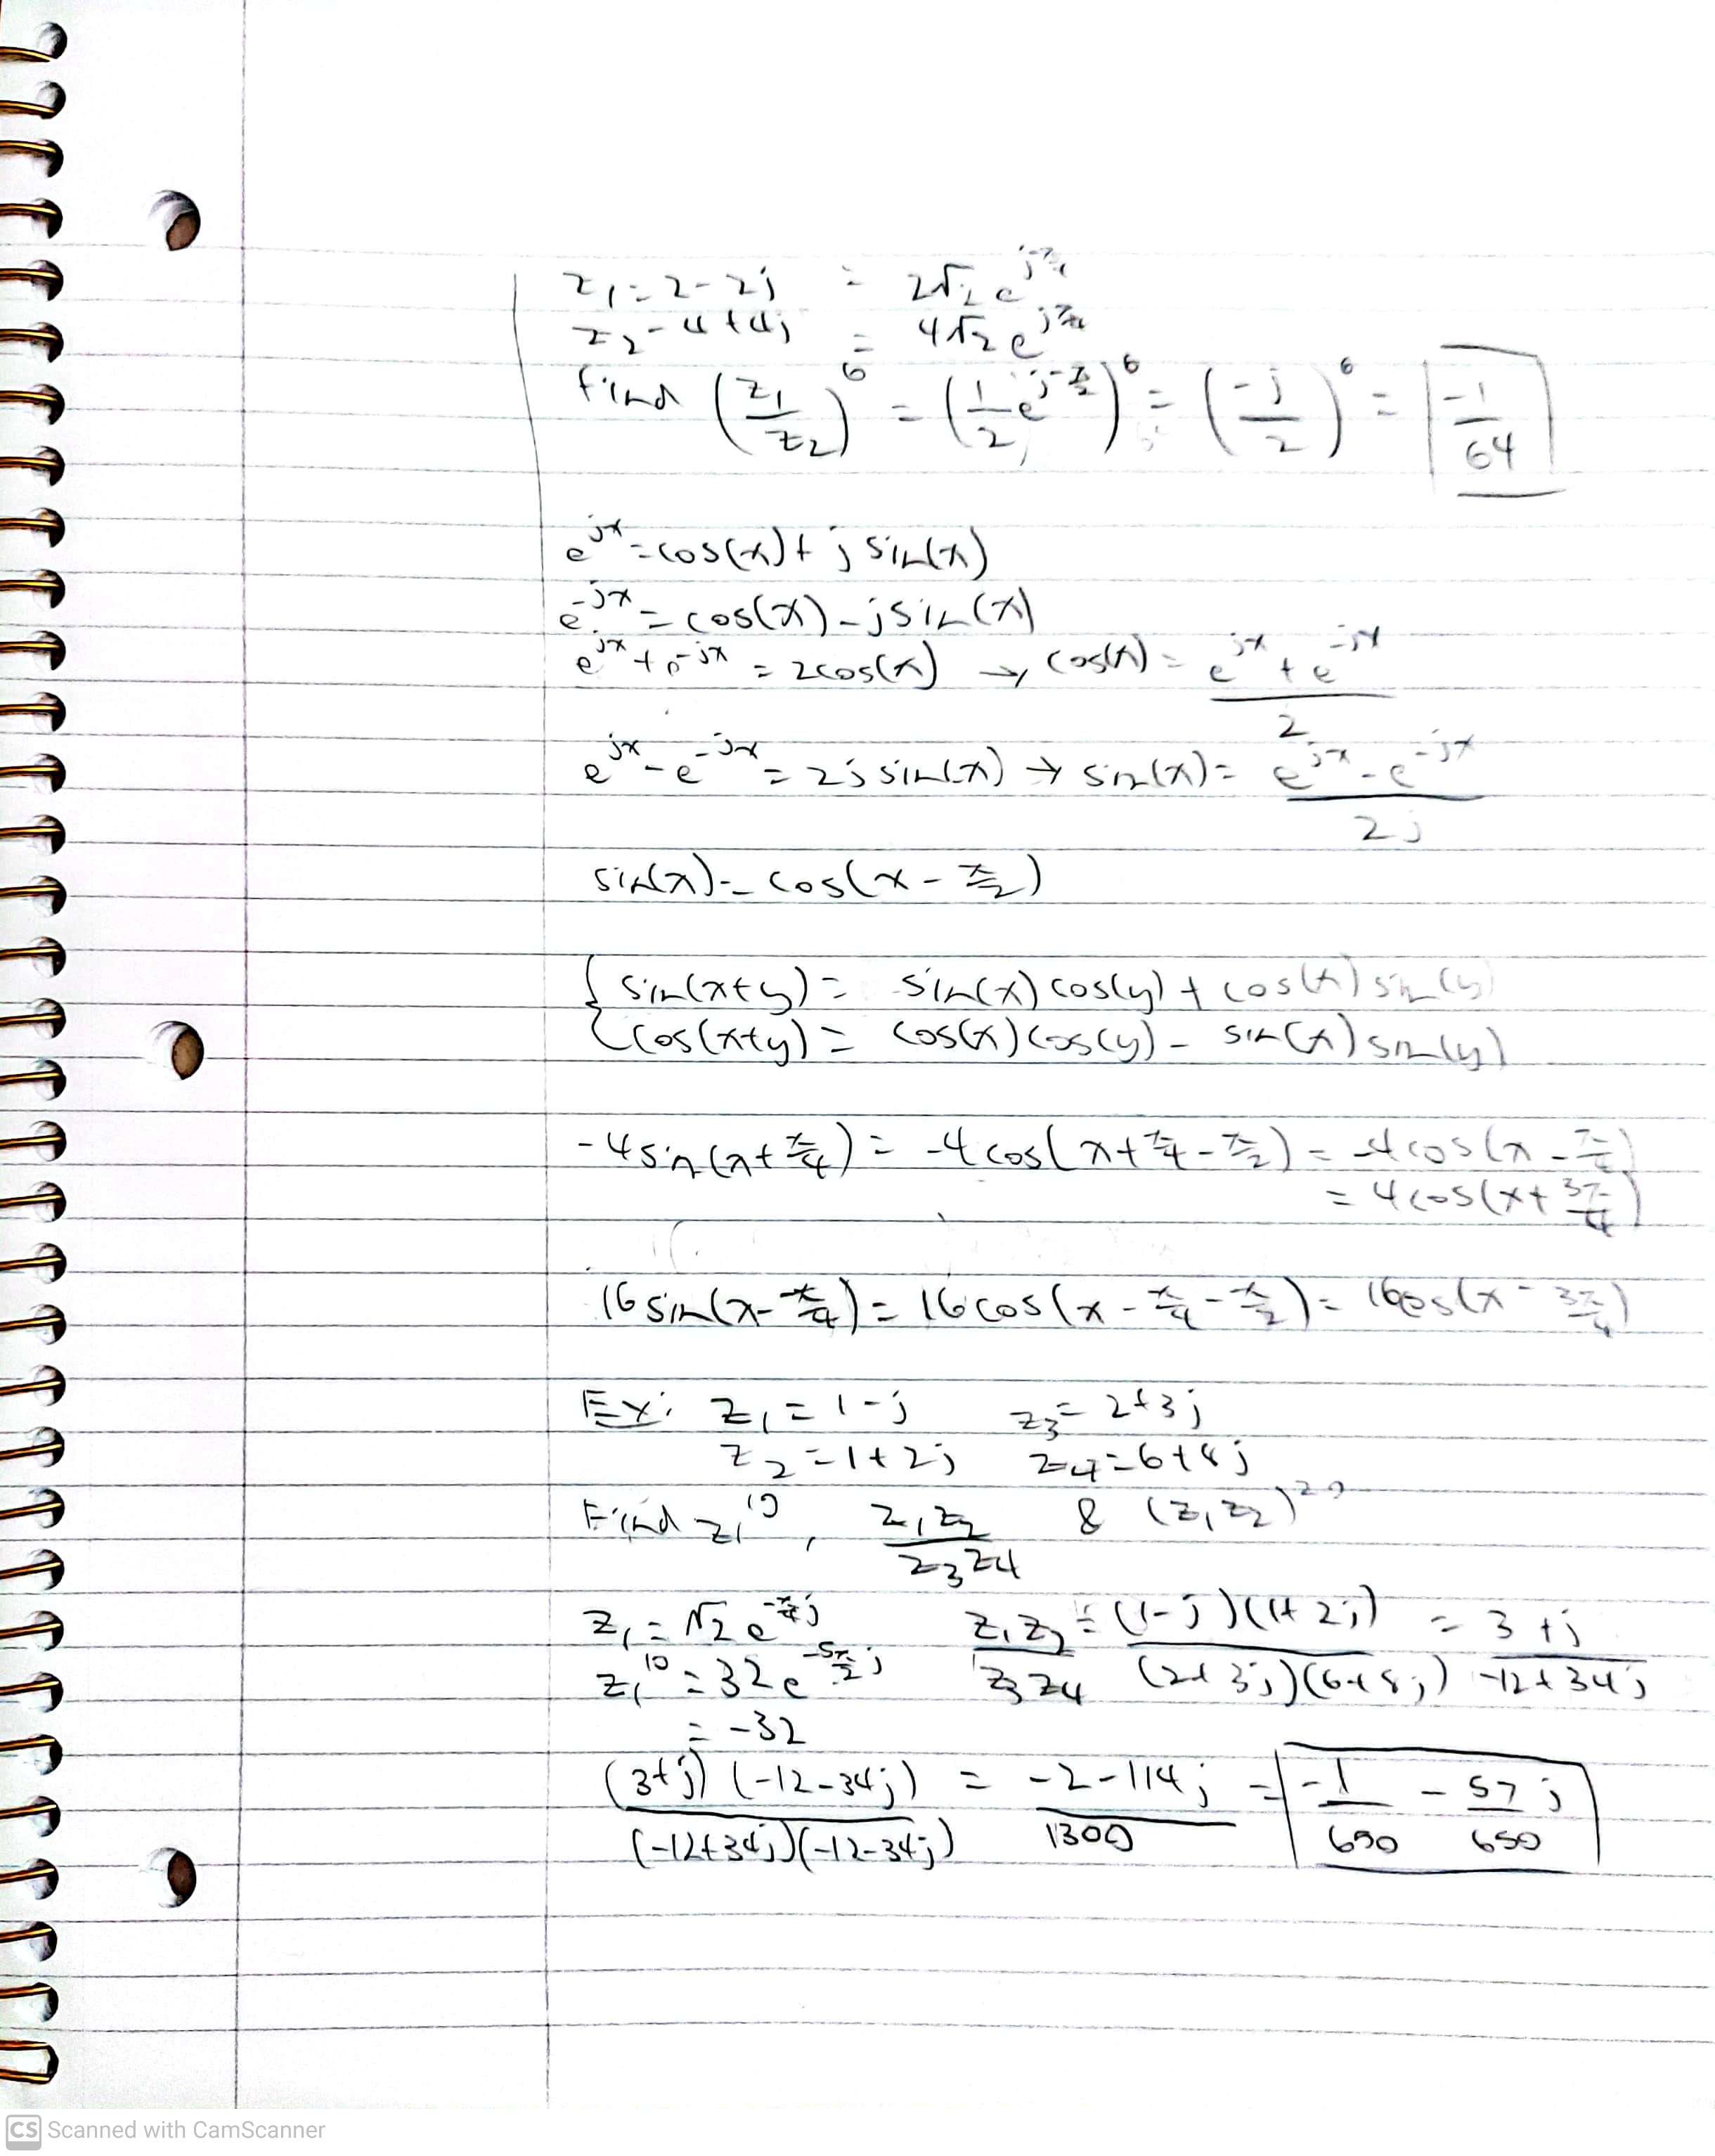 z₁ = 2 - 2j = 2√2 e^(j-π/4)
z₂ - 4 + 4j = 4√2 e^(jπ/4)
Find (z₁/z₂)^6 = (1/2 e^(j-π/2))^6 = (-j/2)^6 = -1/64
e^(jx) = cos(x) + j sin(x)
e^(-jx) = cos(x) - j sin(x)
e^(jx) + e^(-jx) = 2cos(x) → cos(x) = (e^(jx) + e^(-jx))/2
e^(jx) - e^(-jx) = 2j sin(x) → sin(x) = (e^(jx) - e^(-jx))/2j
sin(x) = cos(x - π/2)
{ sin(x+y) = sin(x) cos(y) + cos(x) sin(y)
{ cos(x+y) = cos(x) cos(y) - sin(x) sin(y)
-4 sin(x + π/4) = -4 cos(x + π/4 - π/2) = -4 cos(x - π/4)
= 4 cos(x + 3π/4)
16 sin(x - π/4) = 16 cos(x - π/4 - π/2) = 16cos(x - 3π/4)
Ex: z₁ = 1 - j z₃ = 2 + 3j
z₂ = 1 + 2j z₄ = 6 + 8j
Find z₁^10, z₁z₂/z₃z₄ & (z₁z₂)^20
z₁ = √2 e^(-π/4 j) z₁z₂/z₃z₄ = (1-j)(1+2j)/(2+3j)(6+8j) = (3+j)/(-12+34j)
z₁^10 = 32 e^(-5π/2 j)
= -32
(3+j)(-12-34j)/(-12+34j)(-12-34j) = (-2-114j)/1300 = -1/650 - 57/650 j
CS Scanned with CamScanner